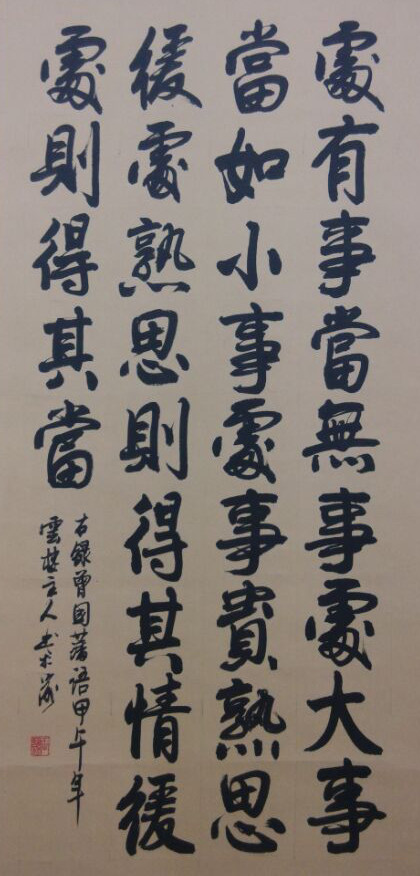 處有事當無事處大事
當如小事處事貴熟思
緩處熟思則得其情緩
處則得其當
右録曾国藩語甲午年
雲主人书